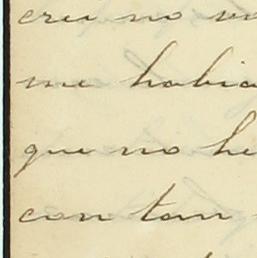 creu no
me habia
que no he
con tan